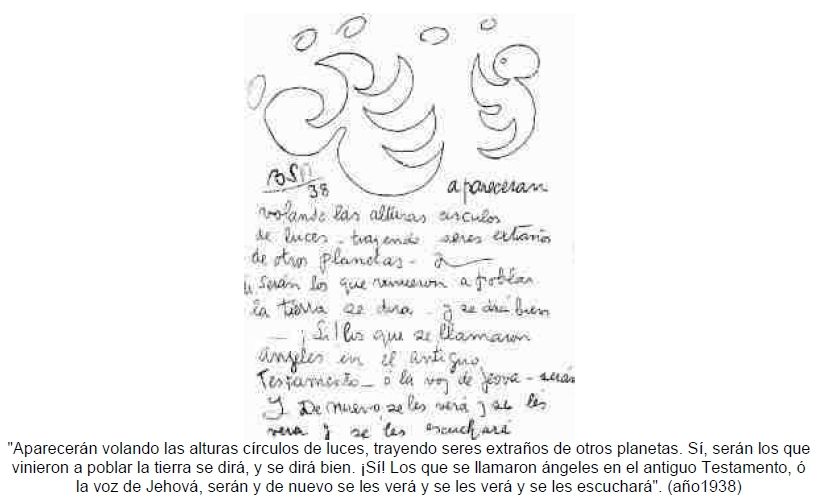 BSP
38
apareceran
volando las alturas circulos
de luces - trayendo seres extraños
de otros planetas -
Serán los que vinieron a poblar
la tierra se dira - y se dirá bien
- ¡Si! los que se llamaron
angeles en el antiguo
Testamento - ó la voz de Jeova - serán
Y De nuevo, se les verá y se les
vera y se les escuchará
"Aparecerán volando las alturas círculos de luces, trayendo seres extraños de otros planetas. Sí, serán los que
vinieron a poblar la tierra se dirá, y se dirá bien. ¡Sí! Los que se llamaron ángeles en el antiguo Testamento, ó
la voz de Jehová, serán y de nuevo se les verá y se les verá y se les escuchará". (año1938)